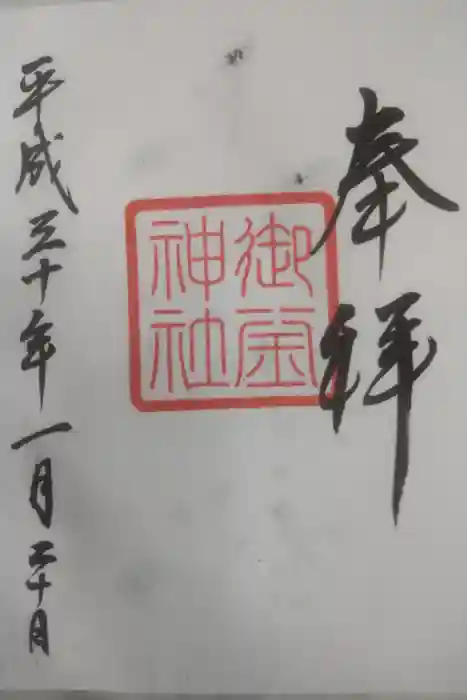 奉拝
御金神社
平成三十年一月二十日